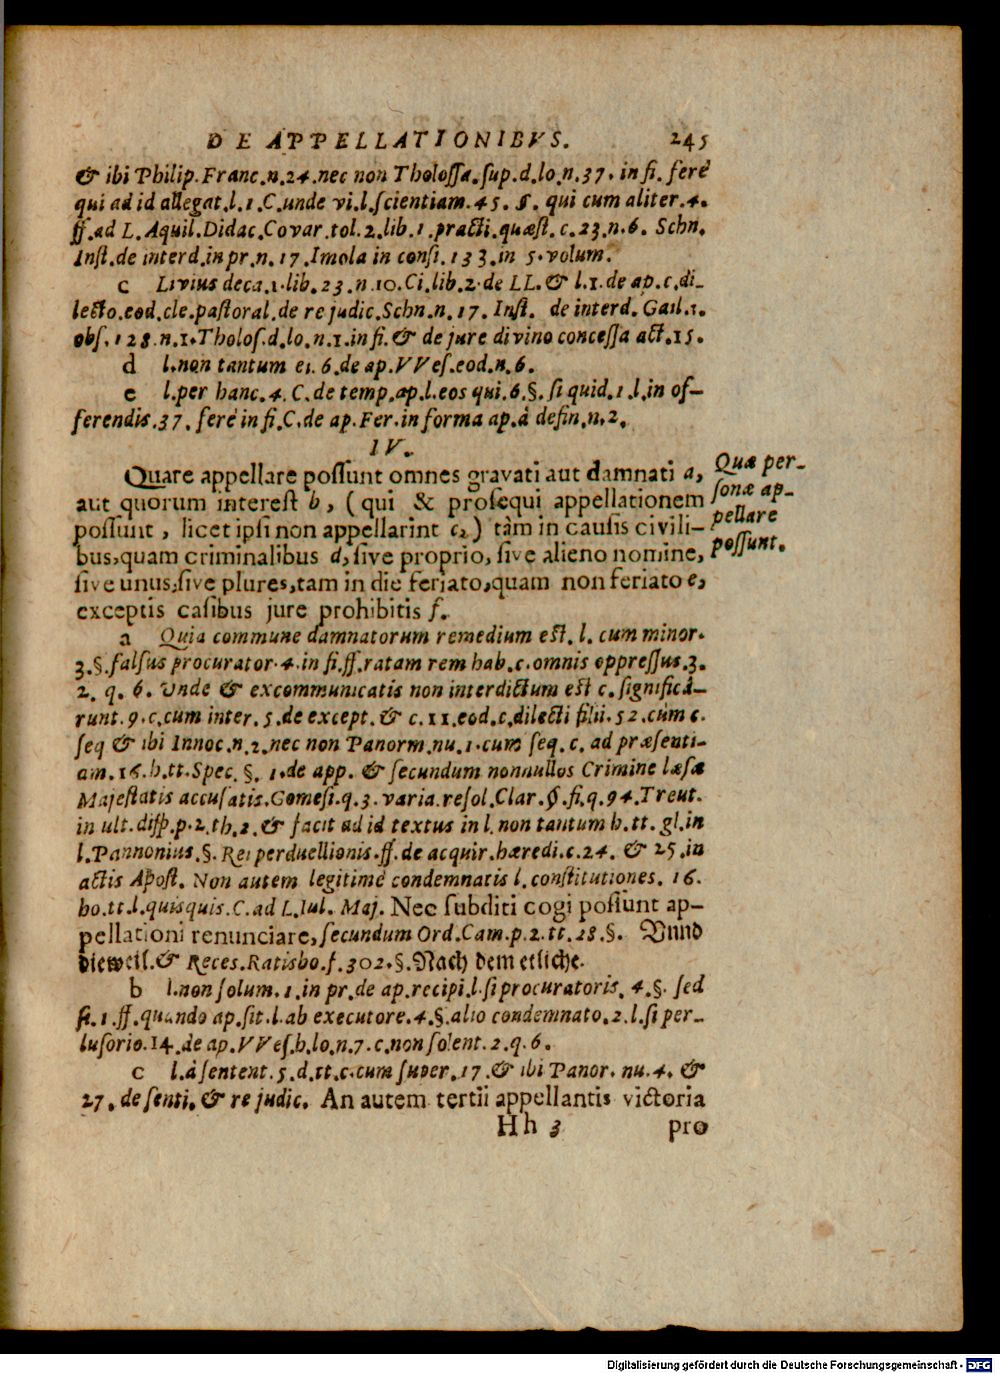 DE APPELLATIONIBVS. 245
& ibi Philip. Franc. n. 24. nec non Tholossa. sup. d. lo. n. 37. in fi. ferè
qui ad id allegat. l. 1. C. unde vi. l. scientiam. 45. §. qui cum aliter. 4.
ff. ad L. Aquil. Didac. Covar. tol. 2. lib. 1. practi. quæst. c. 23. n. 6. Schn.
Inst. de interd. in pr. n. 17. Imola in consi. 133. in 5. volum.
c Livius deca. 1. lib. 23. n. 10. Ci. lib. 2. de LL. & l. 1. de ap. c. di-
lecto. eod. cle. pastoral. de re judic. Schn. n. 17. Inst. de interd. Gail. 1.
obs. 128. n. 1. Tholos. d. lo. n. 1. in fi. & de jure divino concessa act. 15.
d l. non tantum ei. 6. de ap. VVes. eod. n. 6.
e l. per hanc. 4. C. de temp. ap. l. eos qui. 6. §. si quid. 1. l. in of-
ferendis. 37. ferè in fi. C. de ap. Fer. in forma ap. à defin. n. 2.
IV.
Quare appellare possunt omnes gravati aut damnati a,
aut quorum interest b, (qui & prosequi appellationem
possunt, licet ipsi non appellarint c,) tàm in causis civili-
bus, quam criminalibus d, sive proprio, sive alieno nomine,
sive unus, sive plures, tam in die feriato, quam non feriato e,
exceptis casibus jure prohibitis f.
Quæ per-
sonæ ap-
pellare
possunt.
a Quia commune damnatorum remedium est. l. cum minor.
3. §. falsus procurator. 4. in fi. ff. ratam rem hab. c. omnis oppressus. 3.
2. q. 6. Unde & excommunicatis non interdictum est c. significâ-
runt. 9. c. cum inter. 5. de except. & c. 11. eod. c. dilecti filii. 52. cùm c.
seq & ibi Innoc. n. 2. nec non Panorm. nu. 1. cum seq. c. ad præsenti-
am. 16. h. tt. Spec. §. 1. de app. & secundum nonnullos Crimine læsæ
Majestatis accusatis. Gomesi. q. 3. varia. resol. Clar. §. fi. q. 94. Treut.
in ult. disp. p. 2. th. 2. & facit ad id textus in l. non tantum h. tt. gl. in
l. Pannonius. §. Rei perduellionis. ff. de acquir. hæredi. c. 24. & 25. in
actis Apost. Non autem legitimè condemnatis l. constitutiones. 16.
ho. tt. l. quisquis. C. ad L. Iul. Maj. Nec subditi cogi possunt ap-
pellationi renunciare, secundum Ord. Cam. p. 2. tt. 28. §. Vnnd
dieweil. & Reces. Ratisbo. f. 302. §. Nach dem etliche.
b l. non solum. 1. in pr. de ap. recipi. l. si procuratoris. 4. §. sed
si. 1. ff. quando ap. sit. l. ab executore. 4. §. alio condemnato. 2. l. si per-
lusorio. 14. de ap. VVes. h. lo. n. 7. c. non solent. 2. q. 6.
c l. à sentent. 5. d. tt. c. cum super. 17. & ibi Panor. nu. 4. &
27. de senti. & re judic. An autem tertii appellantis victoria
Hh 3 pro
Digitalisierung gefördert durch die Deutsche Forschungsgemeinschaft - DFG